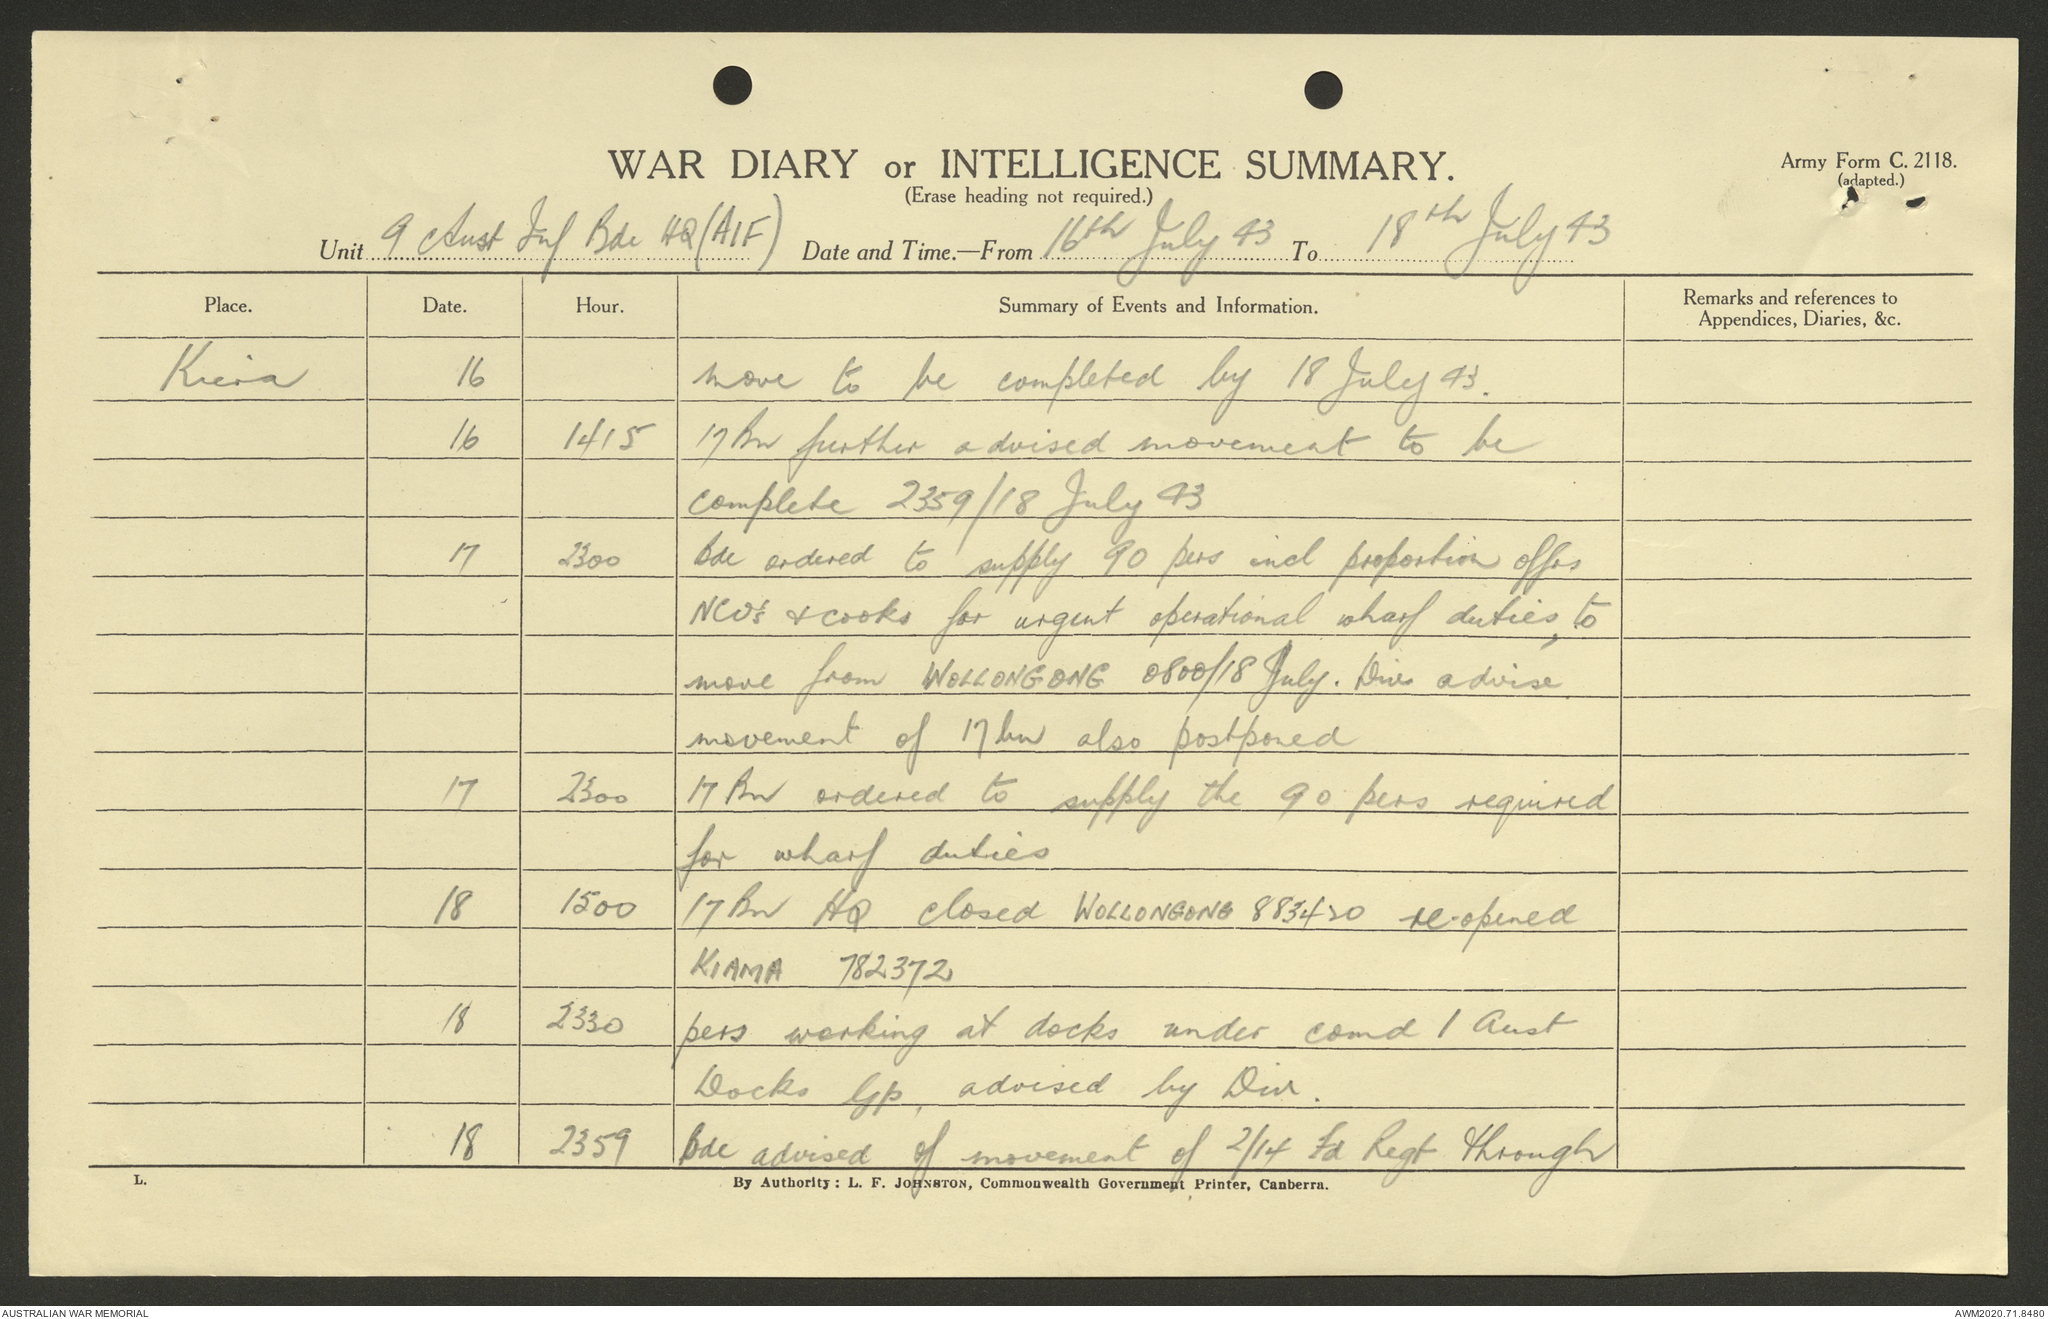 WAR DIARY or INTELLIGENCE SUMMARY.
Army Form C. 2118.
(adapted.)
(Erase heading not required.)
Unit 9 Aust Inf Bde HQ (AIF) Date and Time.—From 16th July 43 To 18th July 43
Place. Date. Hour. Summary of Events and Information. Remarks and references to Appendices, Diaries, &c.
Kiera 16 move to be completed by 18 July 43.
16 1415 17 Bn further advised movement to be
complete 2359/18 July 43
17 2300 Bde ordered to supply 90 pers incl proportion offrs
NCO's & cooks for urgent operational wharf duties, to
move from WOLLONGONG 0800/18 July. Div advise
movement of 17 bn also postponed
17 2300 17 Bn ordered to supply the 90 pers required
for wharf duties
18 1500 17 Bn HQ closed WOLLONGONG 883420 re-opened
KIAMA 782372
18 2330 pers working at docks under comd 1 Aust
Docks Gp, advised by Div.
18 2359 Bde advised of movement of 2/14 Fd Regt through
L.
By Authority: L. F. JOHNSTON, Commonwealth Government Printer, Canberra.
AUSTRALIAN WAR MEMORIAL AWM2020.71.8480